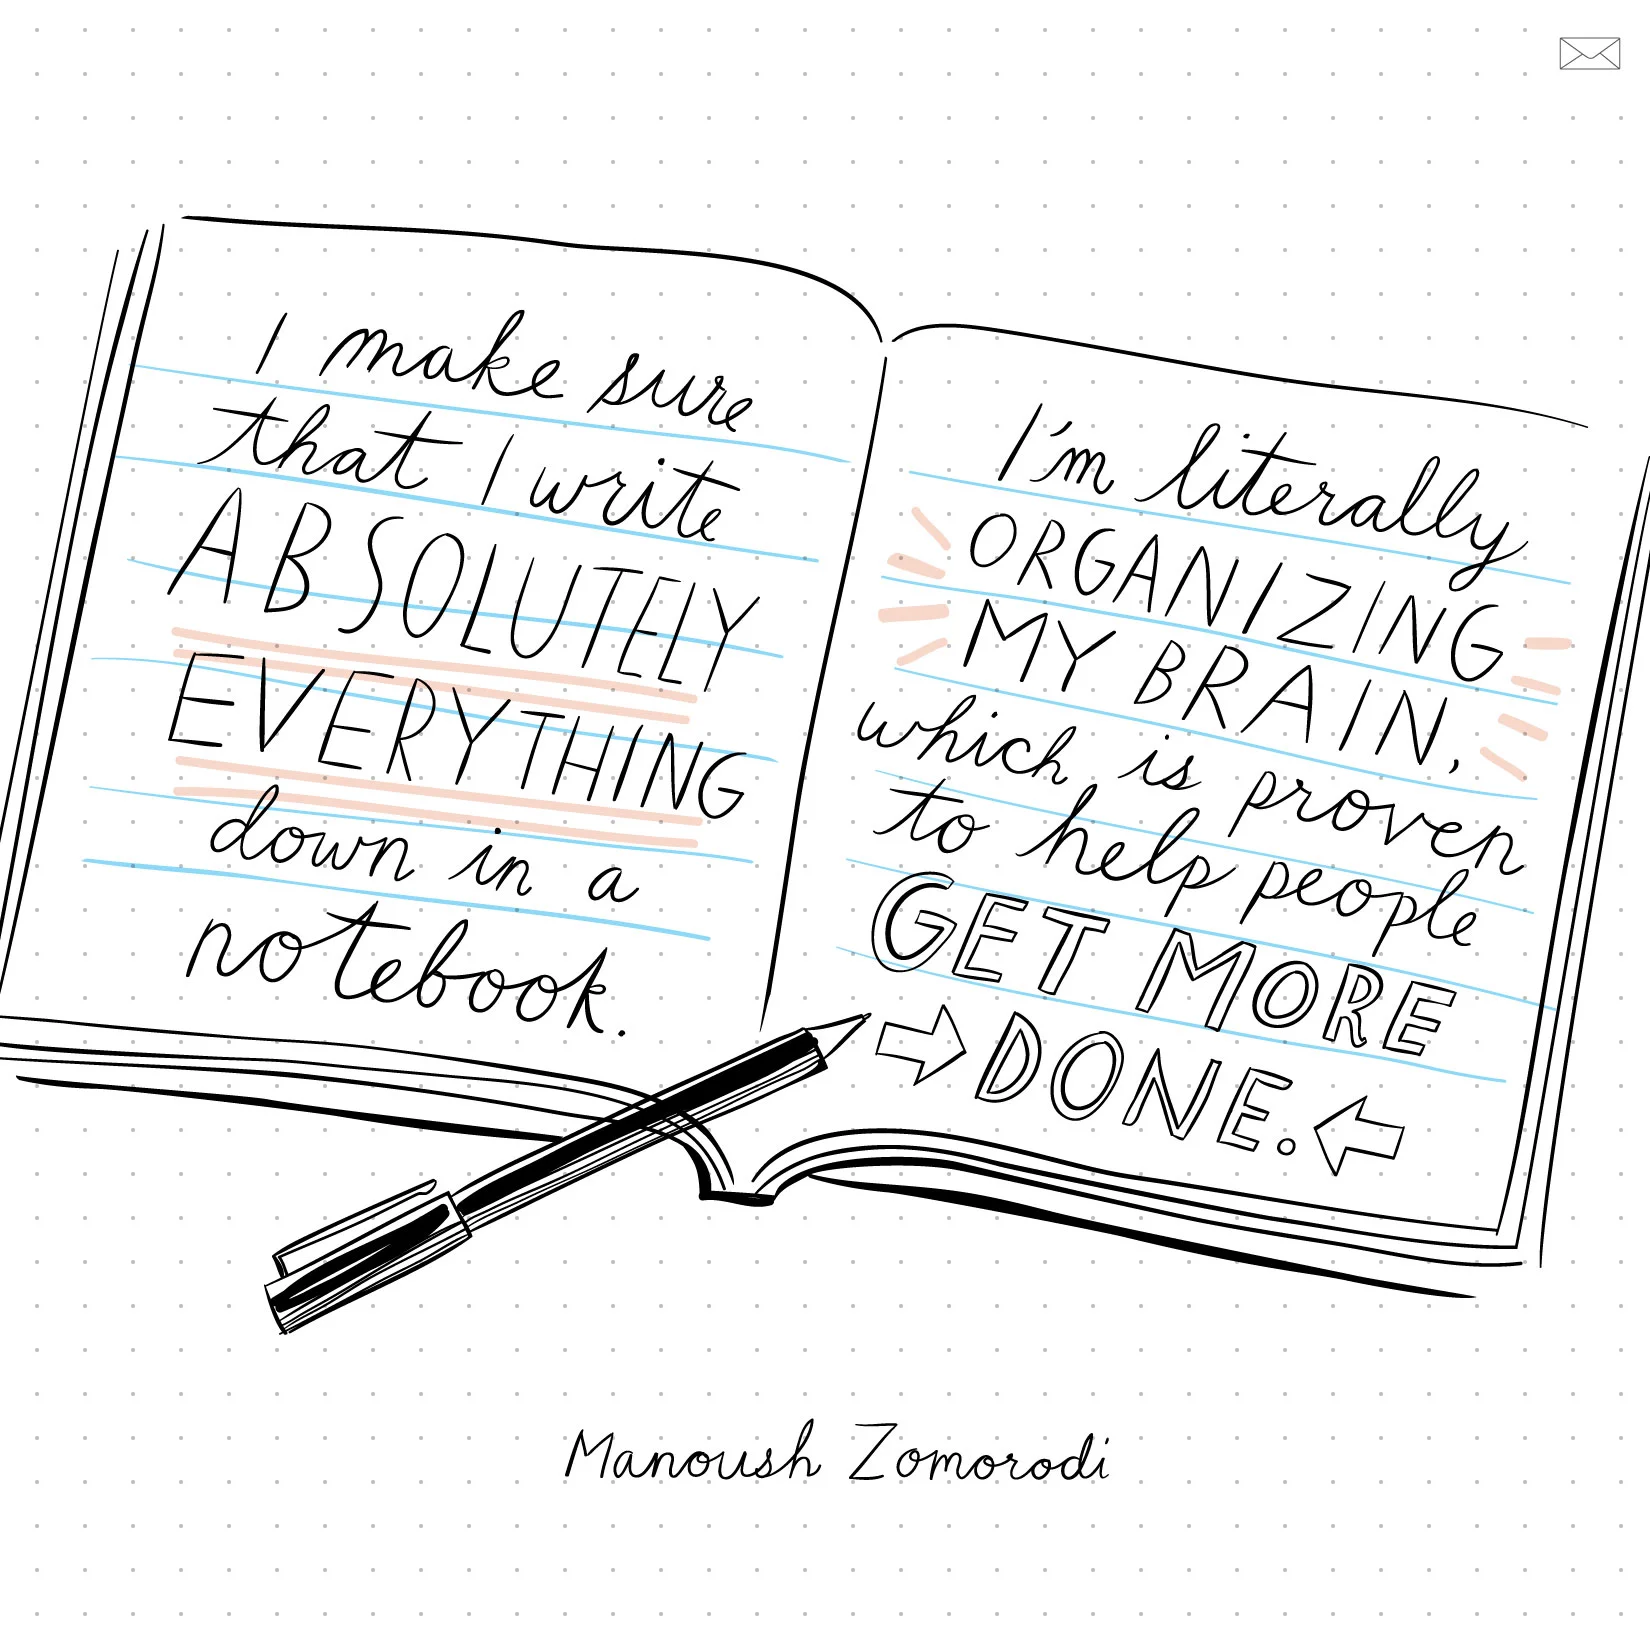 I make sure
that I write
ABSOLUTELY
EVERYTHING
down in a
notebook.
I'm literally
ORGANIZING
MY BRAIN,
which is proven
to help people
GET MORE
DONE.
Manoush Zomorodi